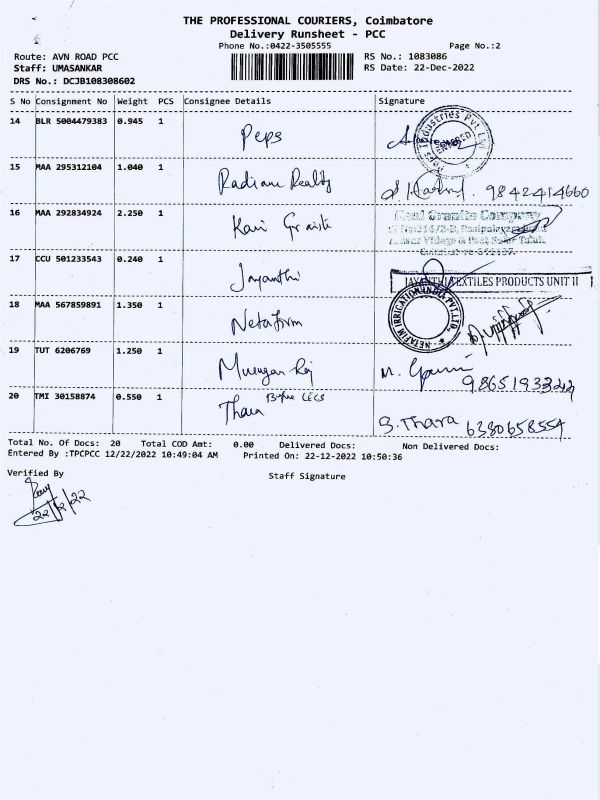 THE PROFESSIONAL COURIERS, Coimbatore
Delivery Runsheet - PCC
Phone No.:0422-3505555 Page No.:2
Route: AVN ROAD PCC RS No.: 1083086
Staff: UMASANKAR RS Date: 22-Dec-2022
DRS No.: DCJB108308602
S No Consignment No Weight PCS Consignee Details Signature
14 BLR 5004479383 0.945 1 Peps
15 MAA 295312104 1.040 1 Radiane Realty 9842414660
16 MAA 292834924 2.250 1 Kavi Granite
Granite Company
17 CCU 501233543 0.240 1 Jayanthi
JAYANTHI TEXTILES PRODUCTS UNIT II
18 MAA 567859891 1.350 1 Netafirm
NETAFIM IRRIGATION INDIA PVT. LTD.
19 TUT 6206769 1.250 1 Murugan Raj M. Gowri
20 TMI 30158874 0.550 1 Thara S. Thara 6380658554
Total No. Of Docs: 20 Total COD Amt: 0.00 Delivered Docs: Non Delivered Docs:
Entered By :TPCPCC 12/22/2022 10:49:04 AM Printed On: 22-12-2022 10:50:36
Verified By Staff Signature
22/12/22